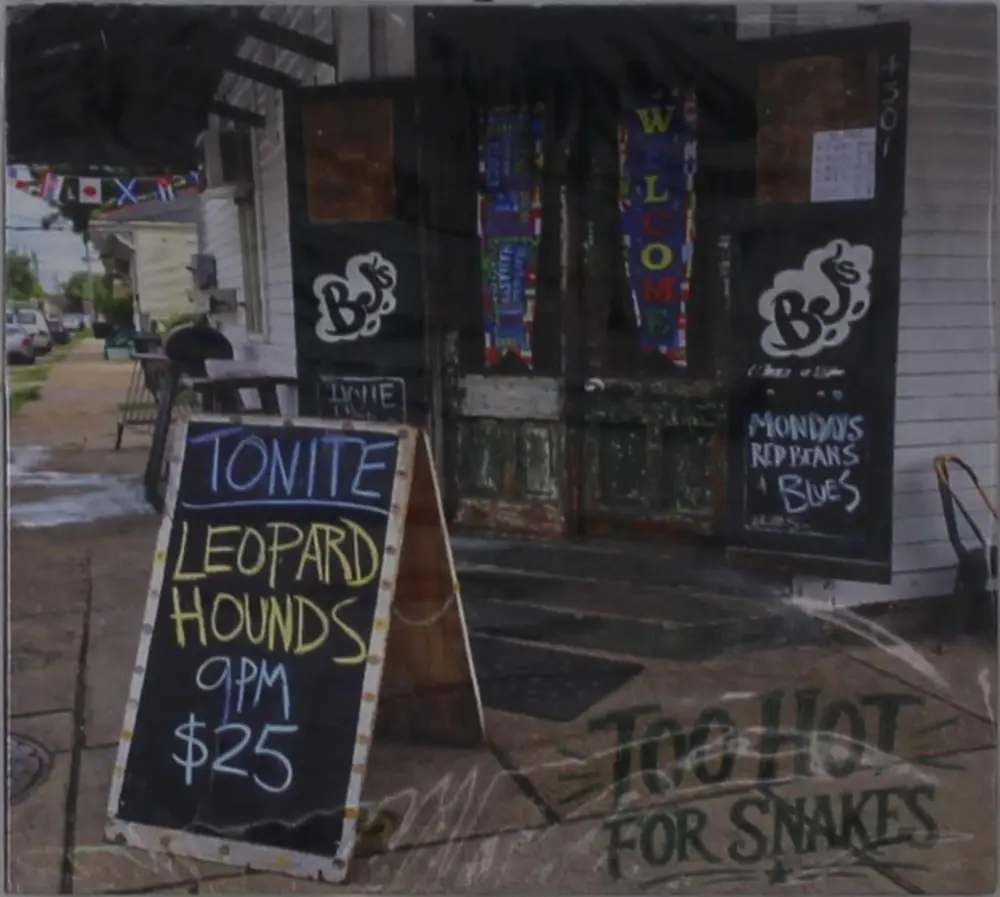 WELCOME
4301
BJ's
BJ's
HOME
MONDAYS
RED BEANS
BLUES
TONITE
LEOPARD
HOUNDS
9PM
$25
TOO HOT
FOR SNAKES